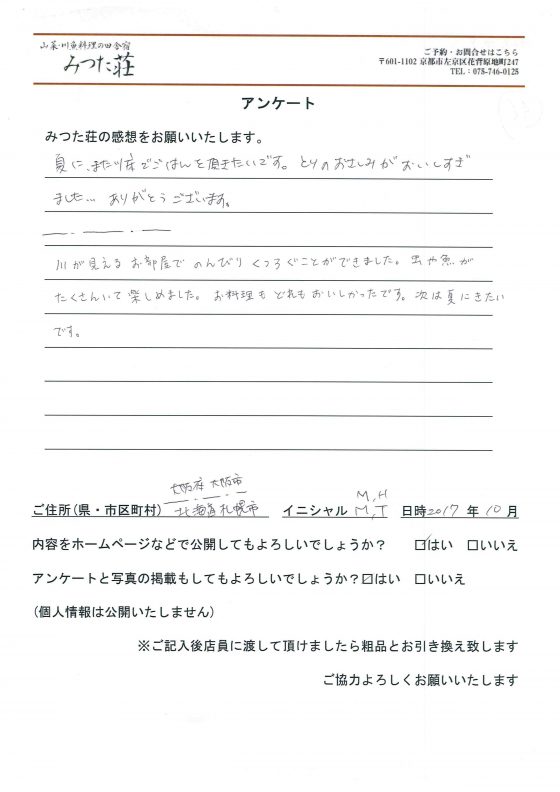 山菜・川魚料理の田舎宿
みつた荘
ご予約・お問合せはこちら
〒601-1102 京都市左京区花背原地町247
TEL:075-746-0125
アンケート
みつた荘の感想をお願いいたします。
夏に、また川床でごはんを頂きたいです。とりのおさしみがおいしすぎ
ました… ありがとうございます。
川が見えるお部屋でのんびりくつろぐことができました。虫や魚が
たくさんいて楽しめました。お料理もどれもおいしかったです。次は夏にきたい
です。
大阪府 大阪市
ご住所(県・市区町村) 北海道札幌市 イニシャル M,H M,T 日時2017 年 10 月
内容をホームページなどで公開してもよろしいでしょうか? ☑はい □いいえ
アンケートと写真の掲載もしてもよろしいでしょうか?☑はい □いいえ
(個人情報は公開いたしません)
※ご記入後店員に渡して頂けましたら粗品とお引き換え致します
ご協力よろしくお願いいたします